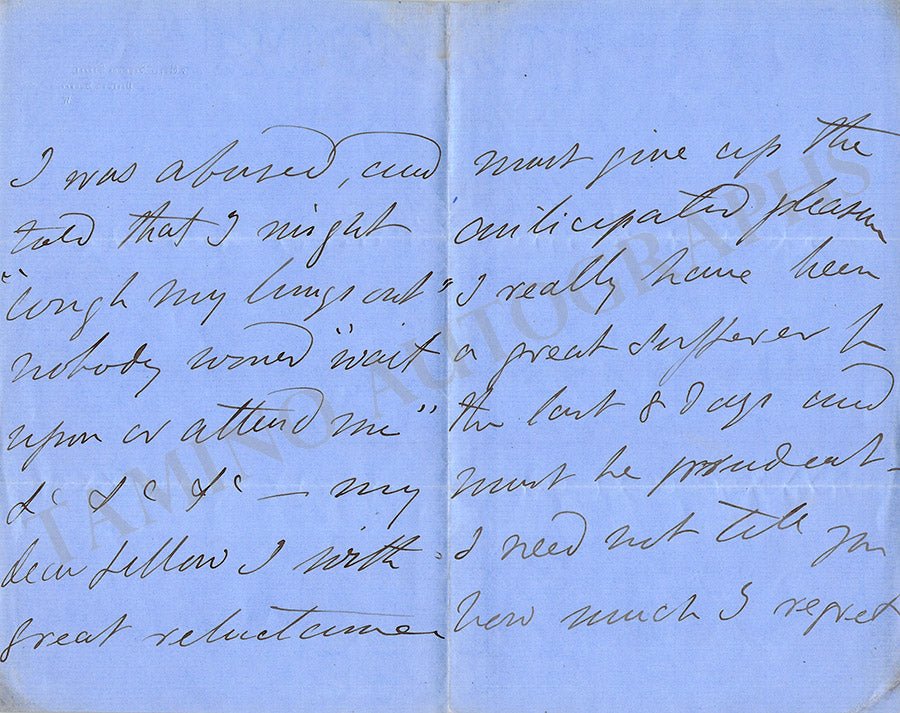 I was abused, and
told that I might
"cough my lungs out"
nobody would "wait
upon or attend me"
&c &c &c — my
dear fellow I with
great reluctance
must give up the
anticipated pleasure
I really have been
a great sufferer
the last 8 days and
must be prudent —
I need not tell you
how much I regret
TAMINO AUTOGRAPHS